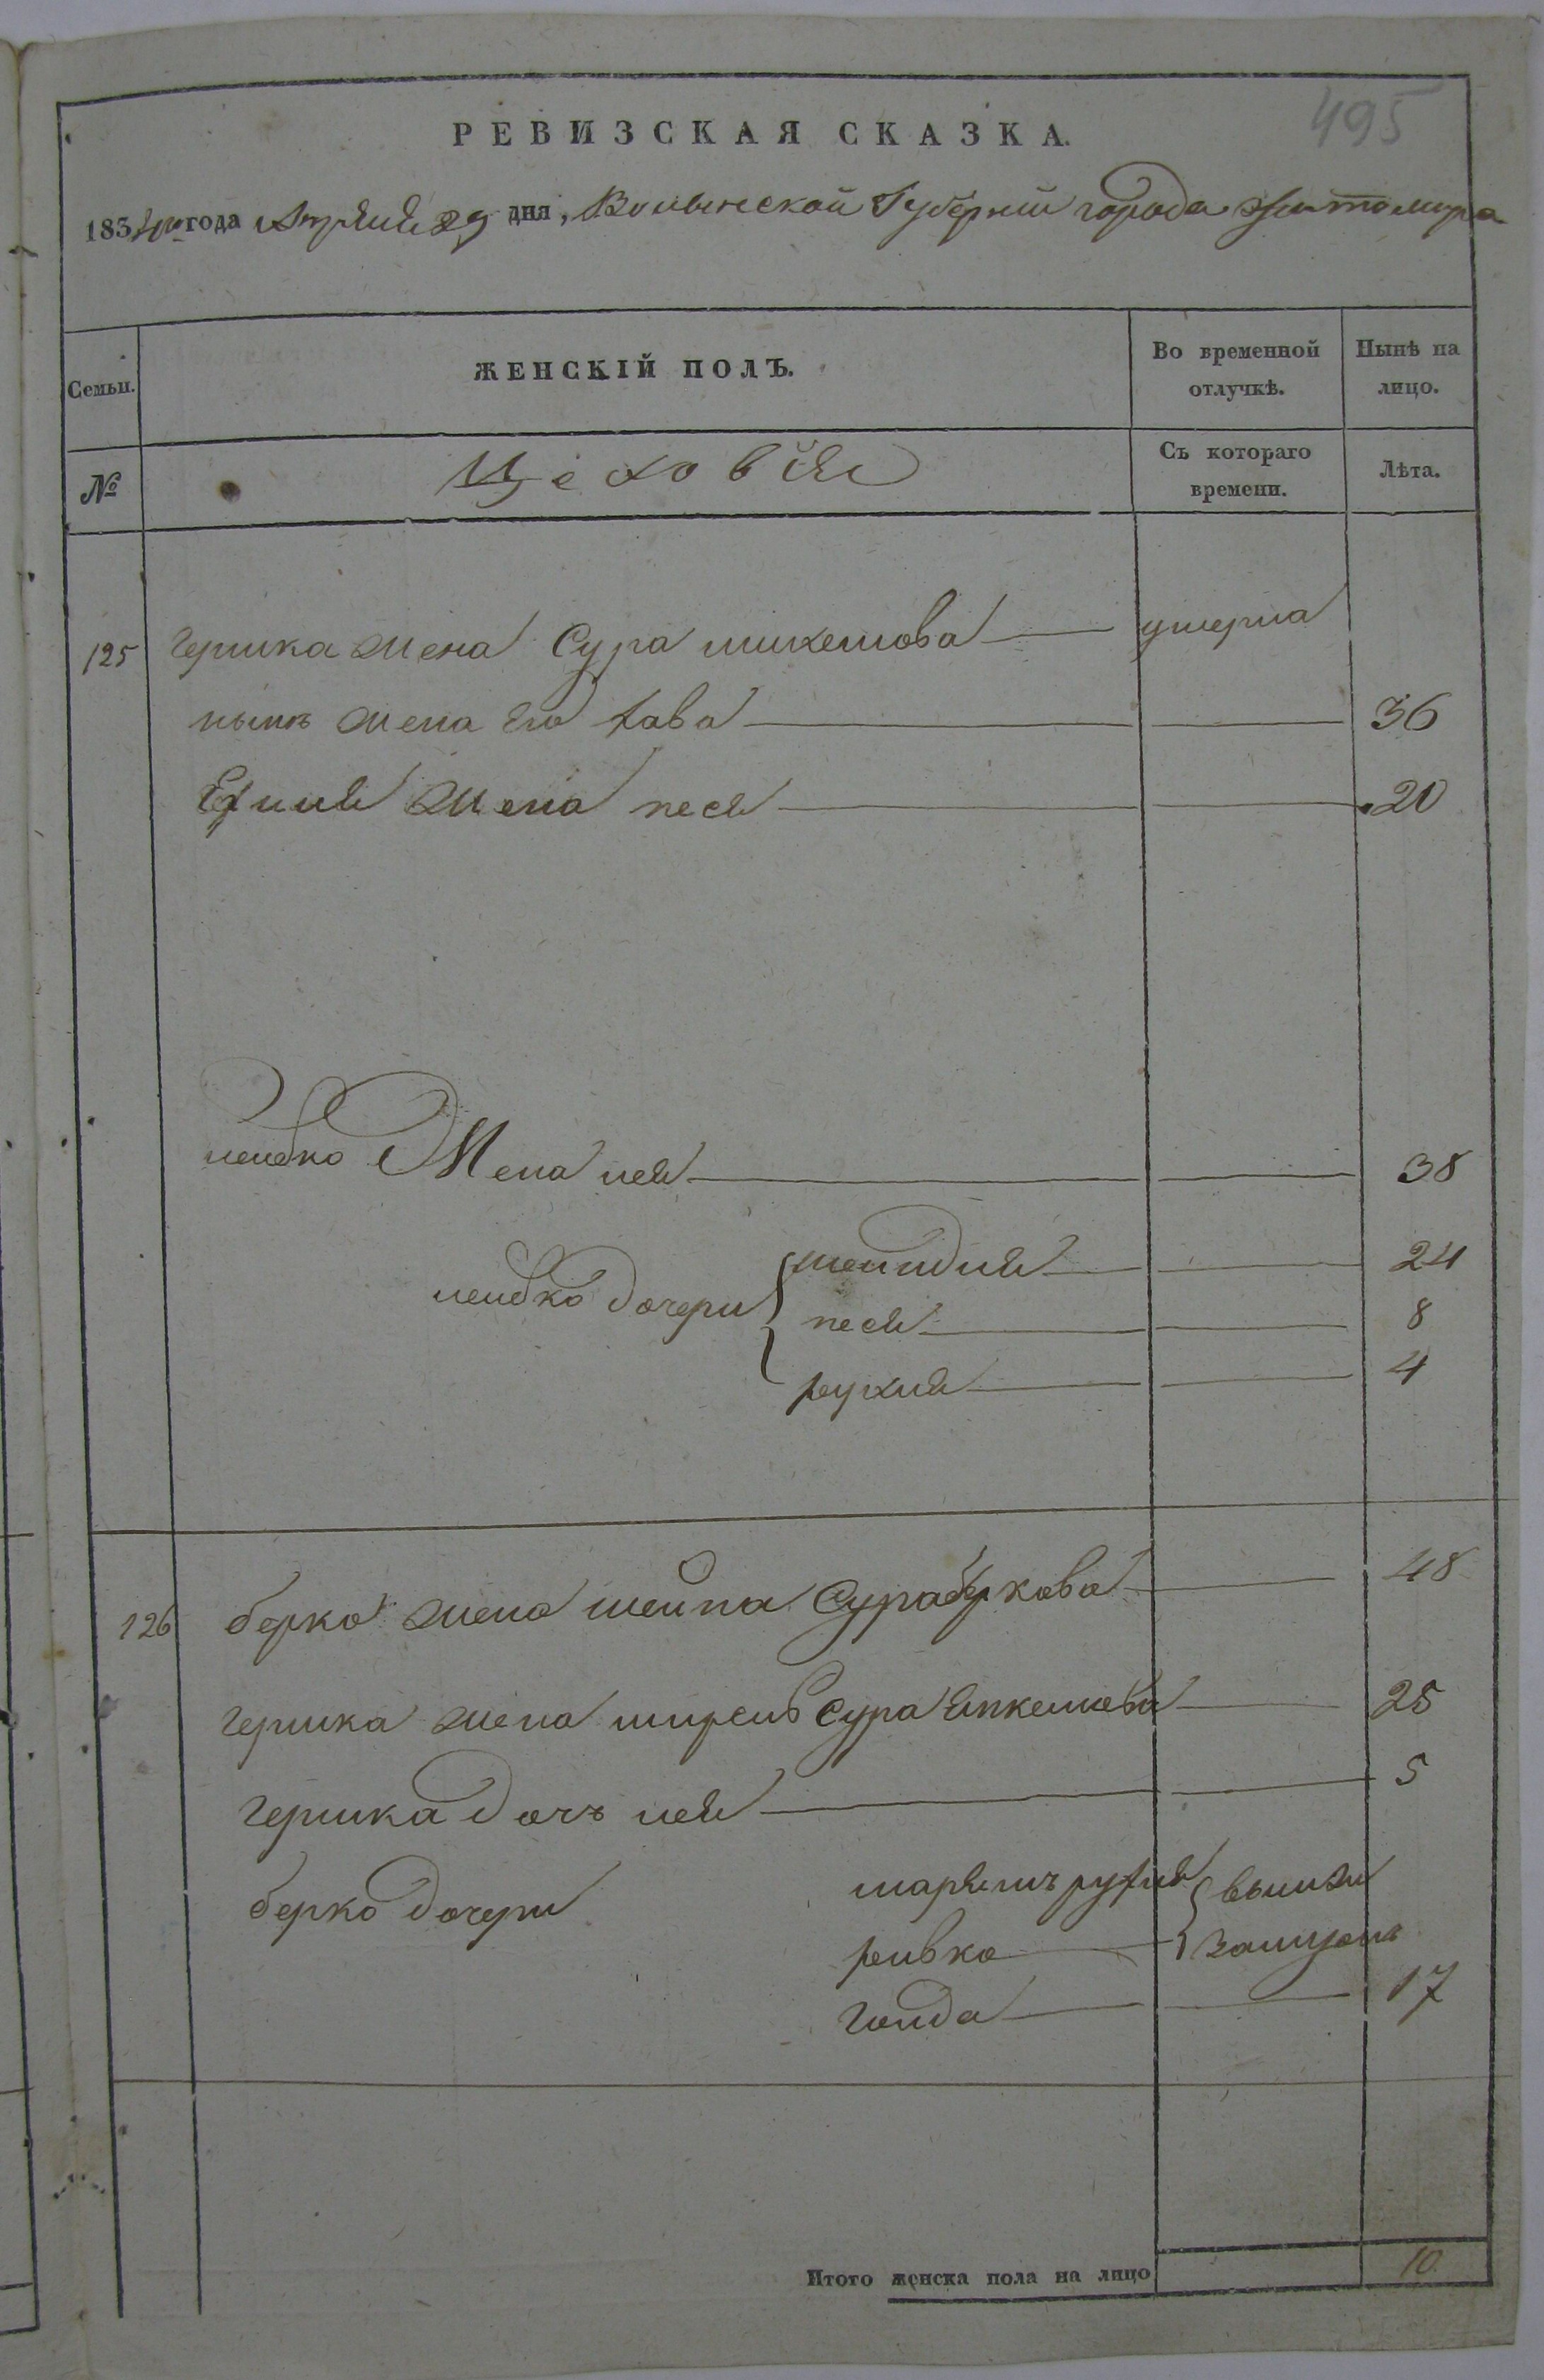 495
РЕВИЗСКАЯ СКАЗКА.
1834го года Апреля 29 дня, Волынской Губернии города Житомира
Семьи.
ЖЕНСКІЙ ПОЛЪ.
Во временной отлучкѣ.
Нынѣ на лицо.
№
Цеховія
Съ котораго времени.
Лѣта.
125 Гершка жена Сура михелова умерла
нынѣ жена его хава 36
жена песя 20
лейбко Жена лея 38
лейбко дочери шейндля 24
песя 8
рухля 4
126 берко жена шейна Сура беркова 48
Гершка жена ширель Сура 25
Гершка дочъ лея 5
берко дочери марьямъ рухля вышли
ривко замужъ
голда 17
Итого женска пола на лицо 10